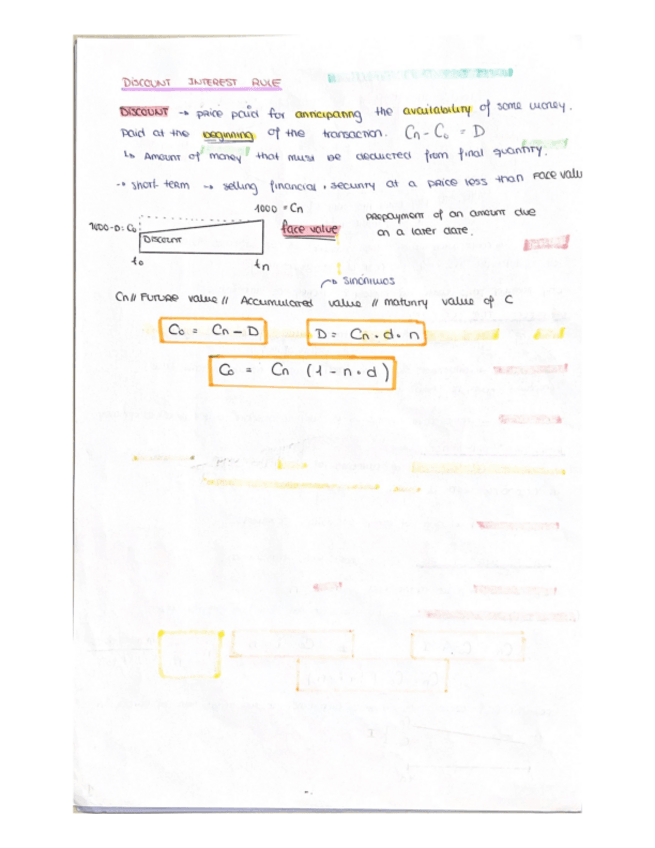 DISCOUNT INTEREST RULE
DISCOUNT → price paid for anticipating the availability of some money.
Paid at the beginning of the transaction. Cn - C₀ = D
↳ Amount of money that must be deducted from final quantity.
→ short term → selling financial security at a price less than FACE valu
1000 = Cn
1000-D = C₀
DISCOUNT
t₀ tn
face value
prepayment of an amount due
on a later date.
→ SINÓNIMOS
Cn // Future value // Accumulated value // maturity value of C
C₀ = Cn - D
D = Cn · d · n
C₀ = Cn (1 - n · d)